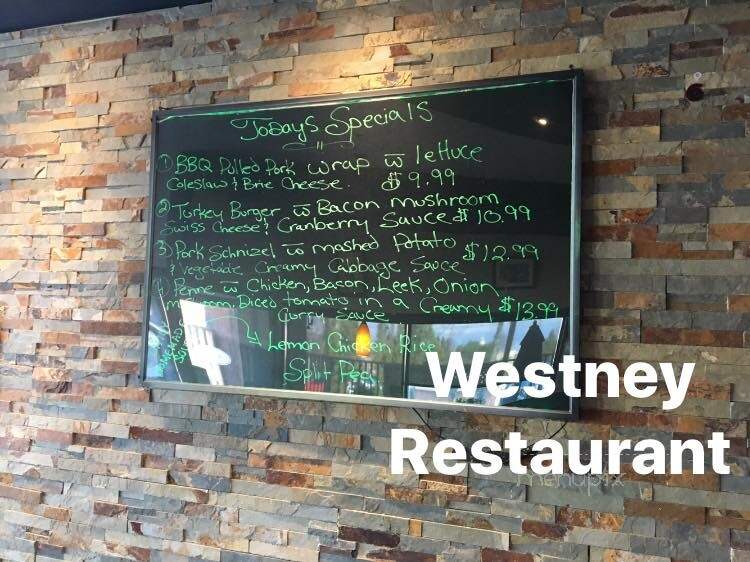 Todays Specials
① BBQ Pulled Pork wrap w̅ lettuce
Coleslaw & Brie Cheese. $9.99
2) Turkey Burger w̅ Bacon mushroom
Swiss Cheese & Cranberry Sauce $10.99
3) Pork Schnizel w̅ mashed Potato $12.99
& Vegetable Creamy Cabbage Sauce
4) Penne w̅ Chicken, Bacon, Leek, Onion
mushroom, Diced tomato in a Creamy $13.99
Curry Sauce
Lemon Chicken Rice
Split Peas
Westney
Restaurant
menupix